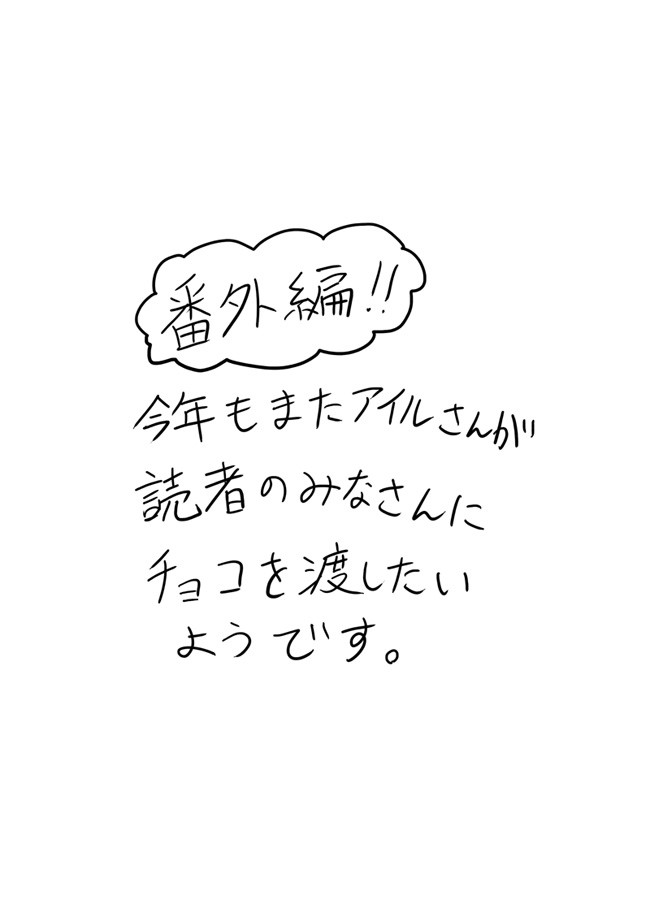 番外編!!
今年もまたアイルさんが
読者のみなさんに
チョコを渡したい
ようです。